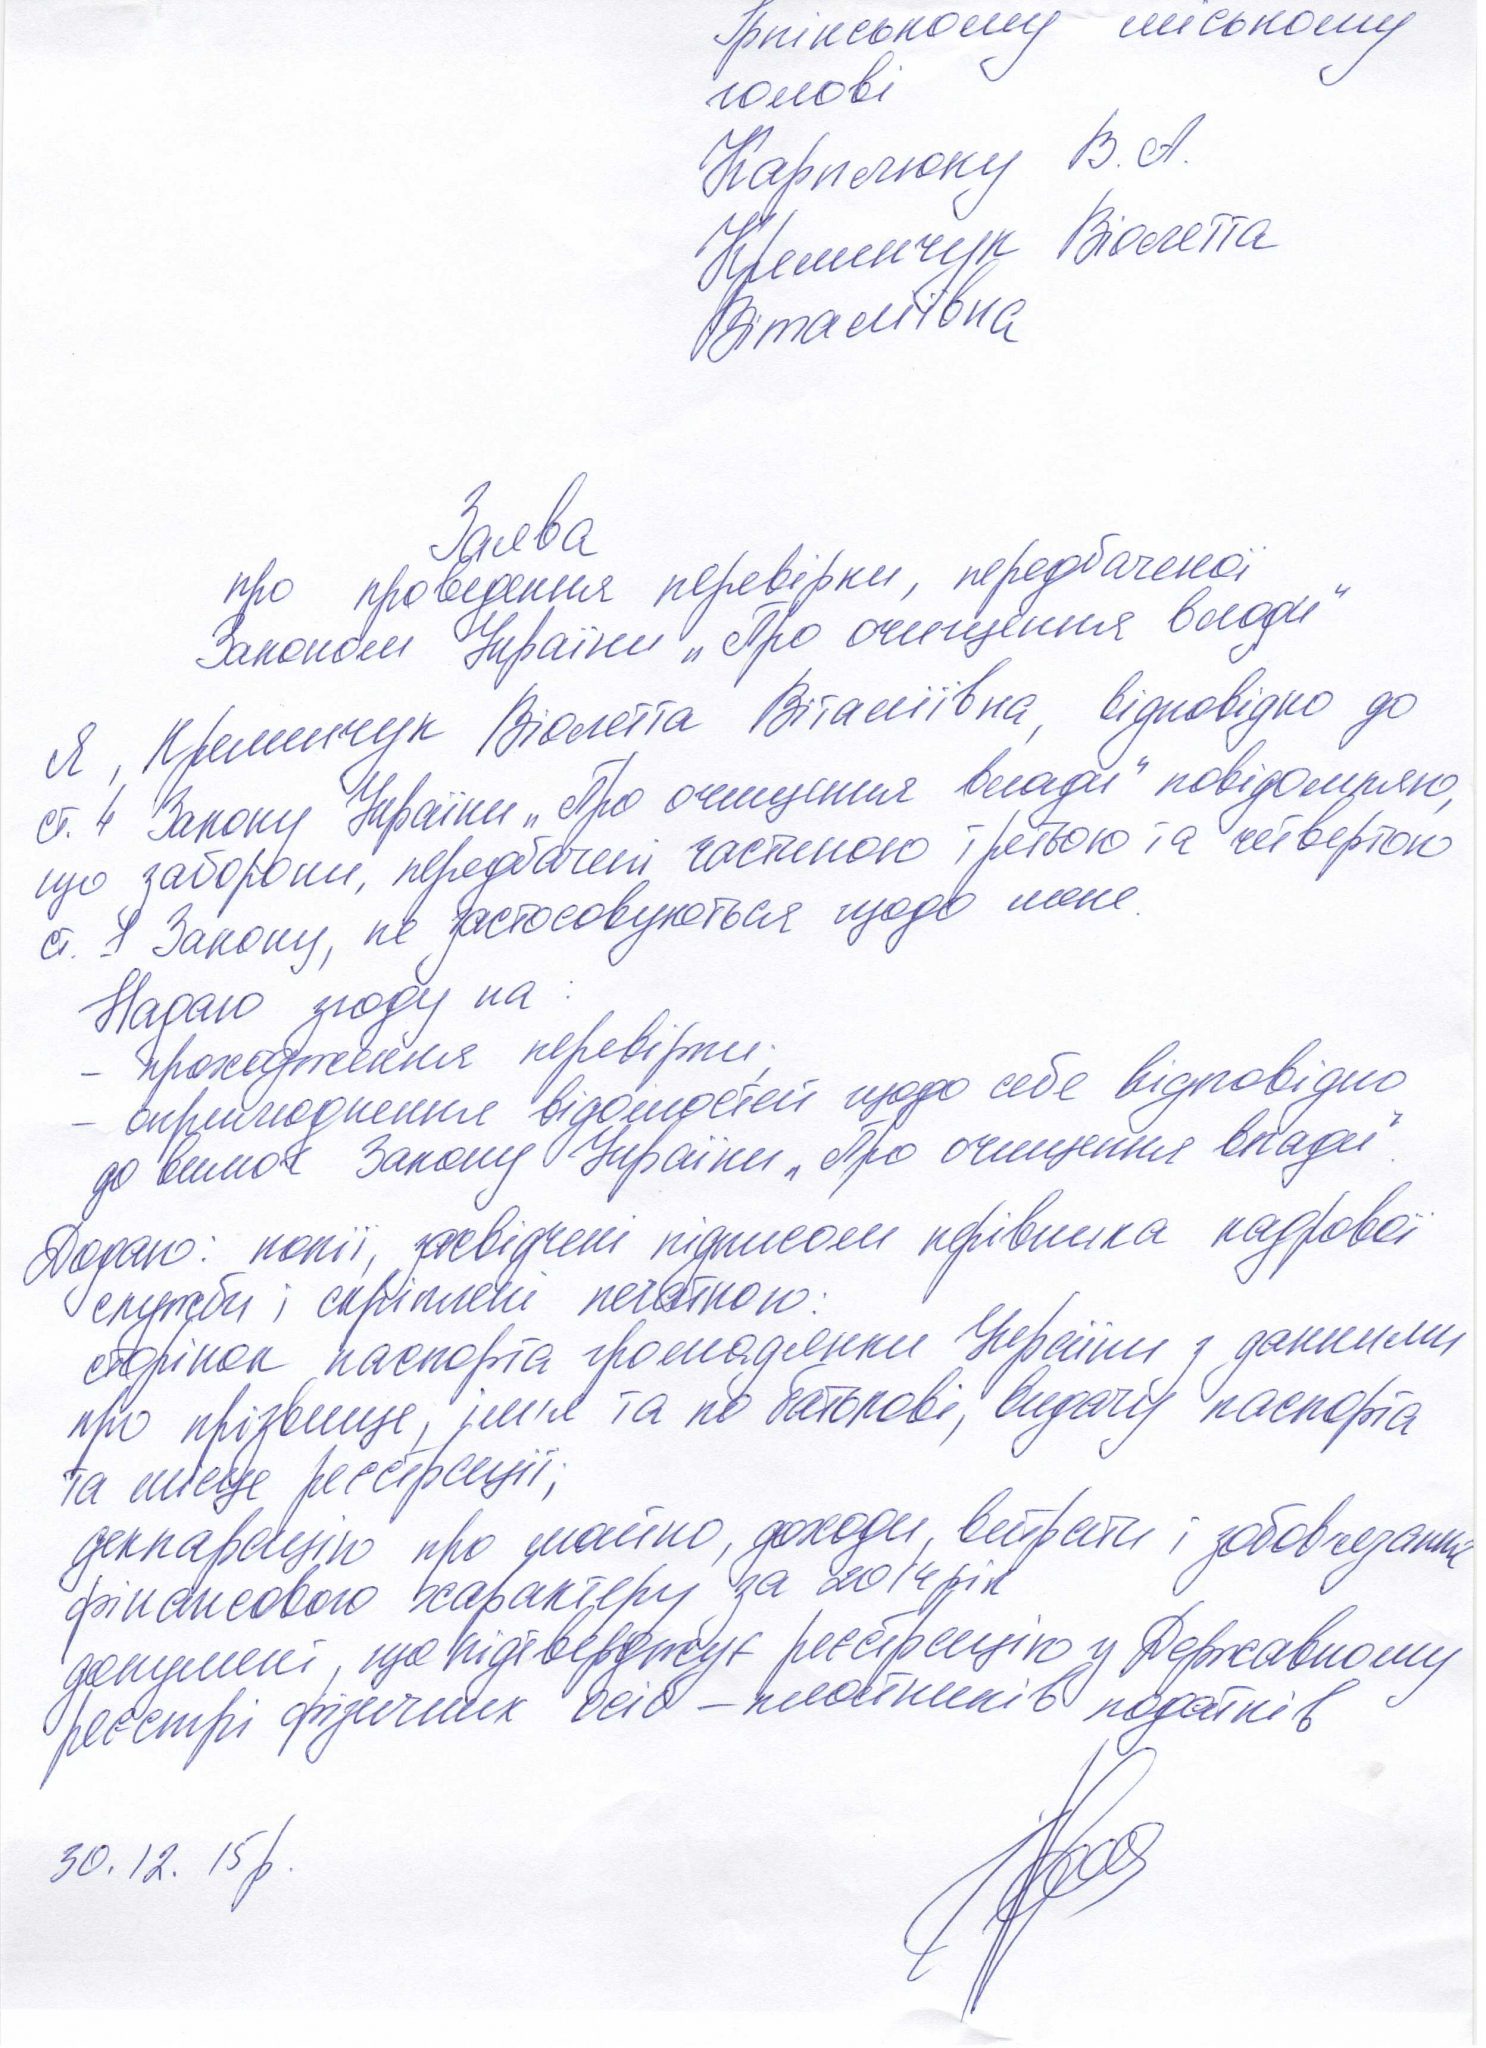 Ірпінському міському
голові
Карплюку В. А.
Кременчук Віолетта
Віталіївна
Заява
про проведення перевірки, передбаченої
Законом України „Про очищення влади"
Я, Кременчук Віолетта Віталіївна, відповідно до
ст. 4 Закону України „Про очищення влади" повідомляю,
що заборони, передбачені частиною третьою та четвертою
ст. 1 Закону, не застосовуються щодо мене.
Надаю згоду на:
- проходження перевірки;
- оприлюднення відомостей щодо себе відповідно
до вимог Закону України „Про очищення влади".
Додаю: копії, засвідчені підписом керівника кадрової
служби і скріплені печаткою:
сторінок паспорта громадянки України з данними
про прізвище, ім'я та по батькові, видачу паспорта
та місце реєстрації;
декларацію про майно, доходи, витрати і зобов'язання
фінансового характеру за 2014 рік
документ, що підтверджує реєстрацію у Державному
реєстрі фізичних осіб – платників податків
30. 12. 15 р.